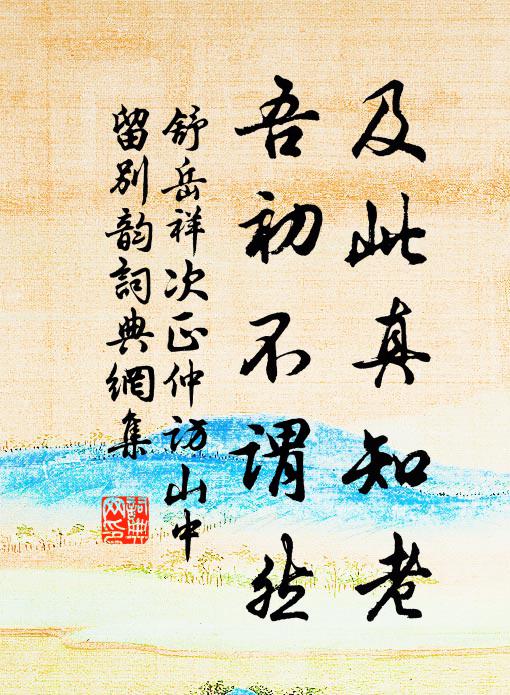 及此真知老
吾初不谓然
舒岳祥次正仲访山中
留别韵詞典網集